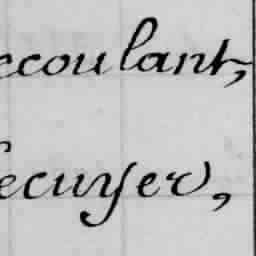 ccoulant,
ecuyer,